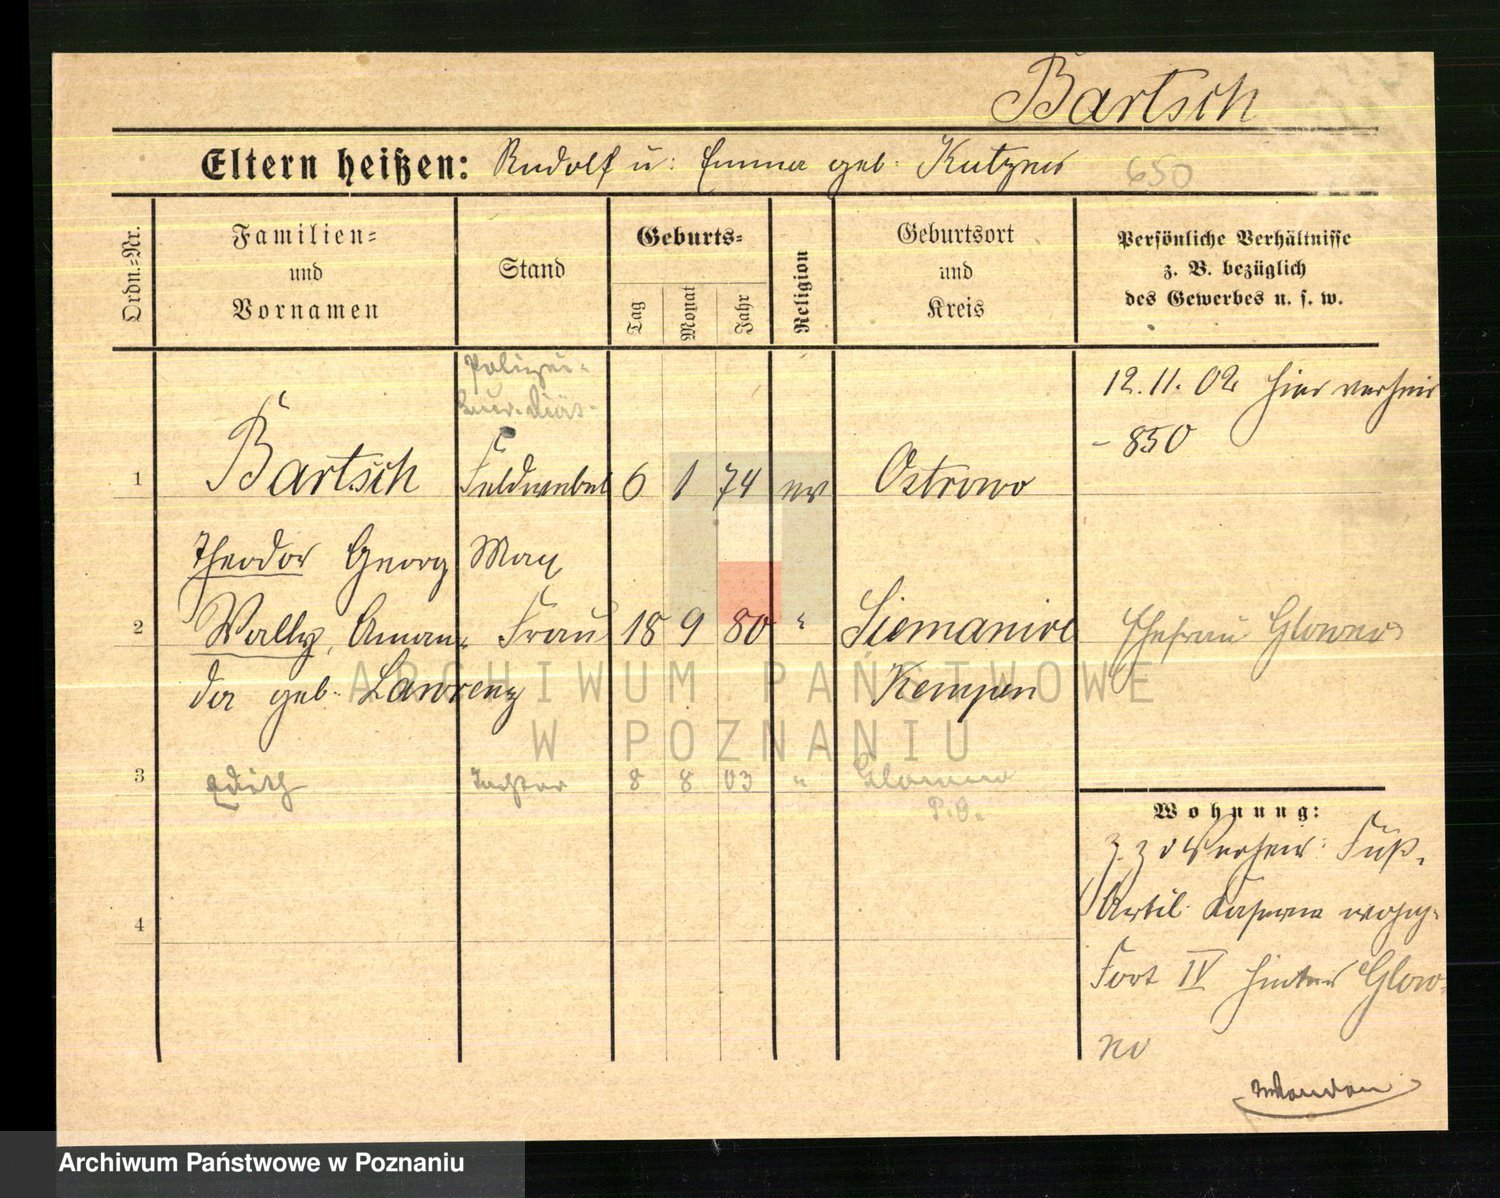 Bartsch
Eltern heißen: Rudolf u: Emma geb: Kutzner 650
Ordn.-Nr.
Familien-
und
Vornamen
Stand
Geburts-
Tag Monat Jahr
Religion
Geburtsort
und
Kreis
Persönliche Verhältnisse
z. B. bezüglich
des Gewerbes u. s. w.
Polizei-
12.11.02 hier verheir
- 850
1 Bartsch Feldwebel 6 1 74 ev Ostrowo
Theodor Georg Max
2 Wally, Aman- Frau 18 9 80 " Siemanice Ehefrau Glowno
da geb. Lawrenz Kempen
3 Edith Tochter 8 8 03 " Glowno
P.O.
Wohnung:
z. Z. d Verheir: Fuß-
4 Artil. Kaserne
Fort IV hinter Glow-
no
ARCHIWUM PAŃSTWOWE
W POZNANIU
Archiwum Państwowe w Poznaniu